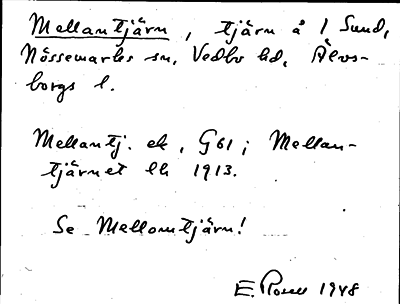 Mellantjärn, tjärn å 1 Sund,
Nössemarks sn, Vedbo hd, Älvs-
borgs l.
Mellantj. ek, G61; Mellan-
tjärnet hk 1913.
Se Mellomtjärn!
E. 1948